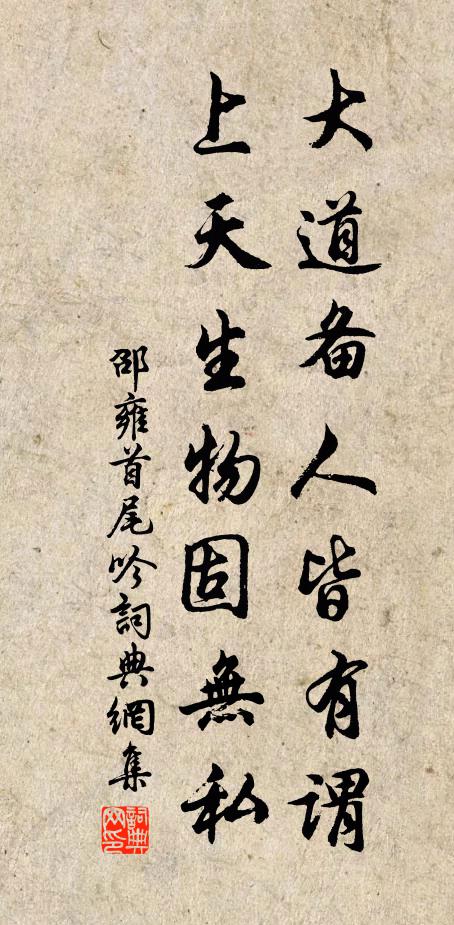 大道备人皆有謂
上天生物固無私
邵雍首尾吟詞典網集
詞典網印